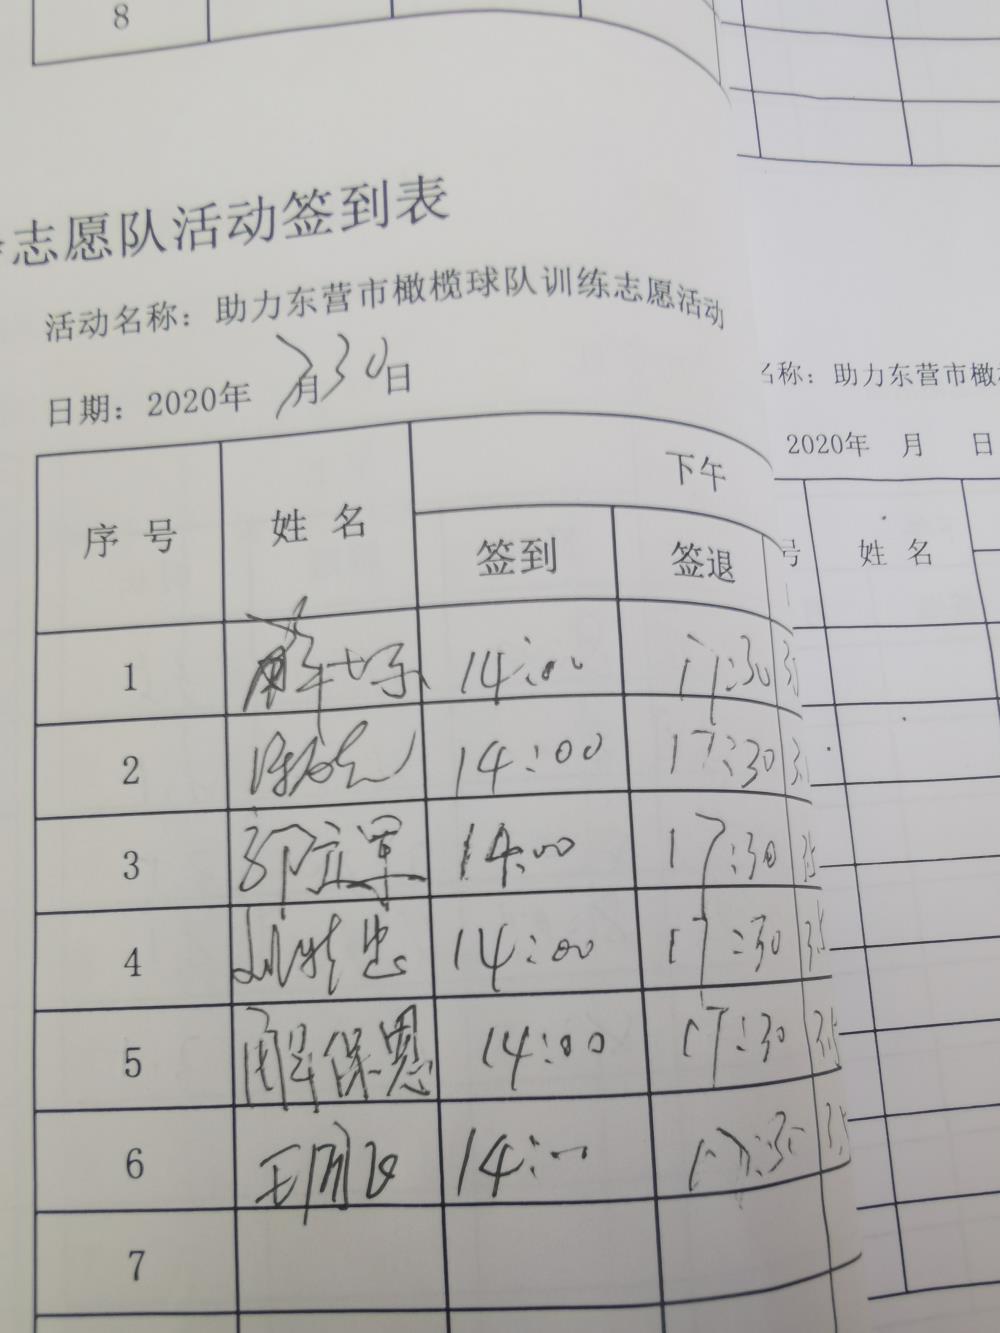 8
志愿队活动签到表
活动名称：助力东营市橄榄球队训练志愿活动
日期：2020年 7月30日
序号 姓名 下午
签到 签退
1 14:00 17:30 3.5
2 14:00 17:30 3.5
3 邵立军 14:00 17:30 3.5
4 14:00 17:30 3.5
5 解保恩 14:00 17:30 3.5
6 14:00 17:30 3.5
7
名称：助力东营市橄
2020年 月 日
号 姓名